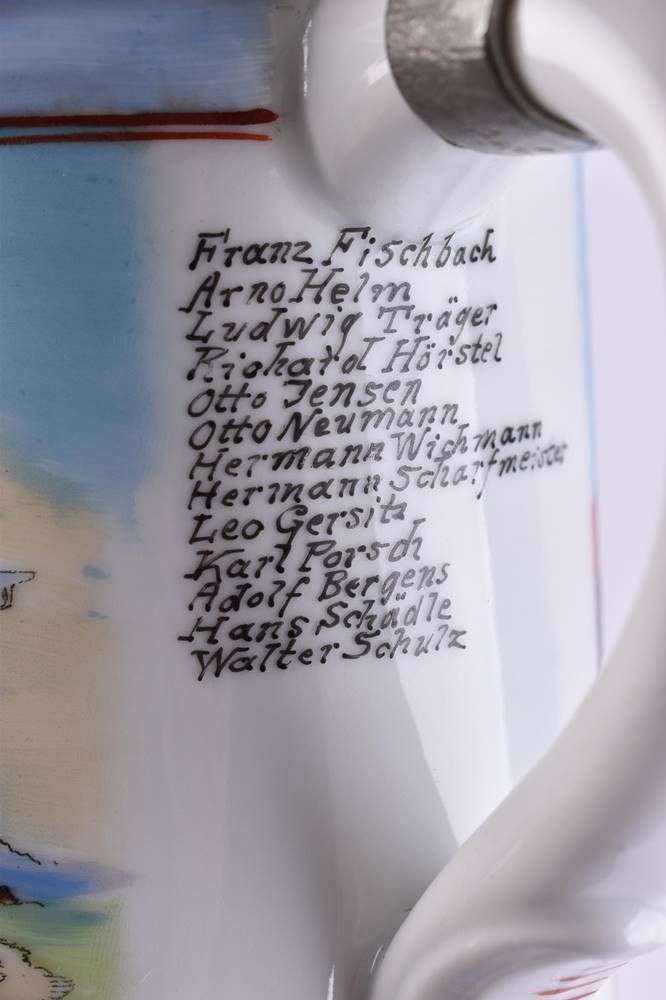 Franz Fischbach
Arno Helm
Ludwig Träger
Richard Hörstel
Otto Jensen
Otto Neumann
Hermann Wichmann
Hermann Scharfmeister
Leo Gersitz
Karl Porsch
Adolf Bergens
Hans Schädle
Walter Schulz